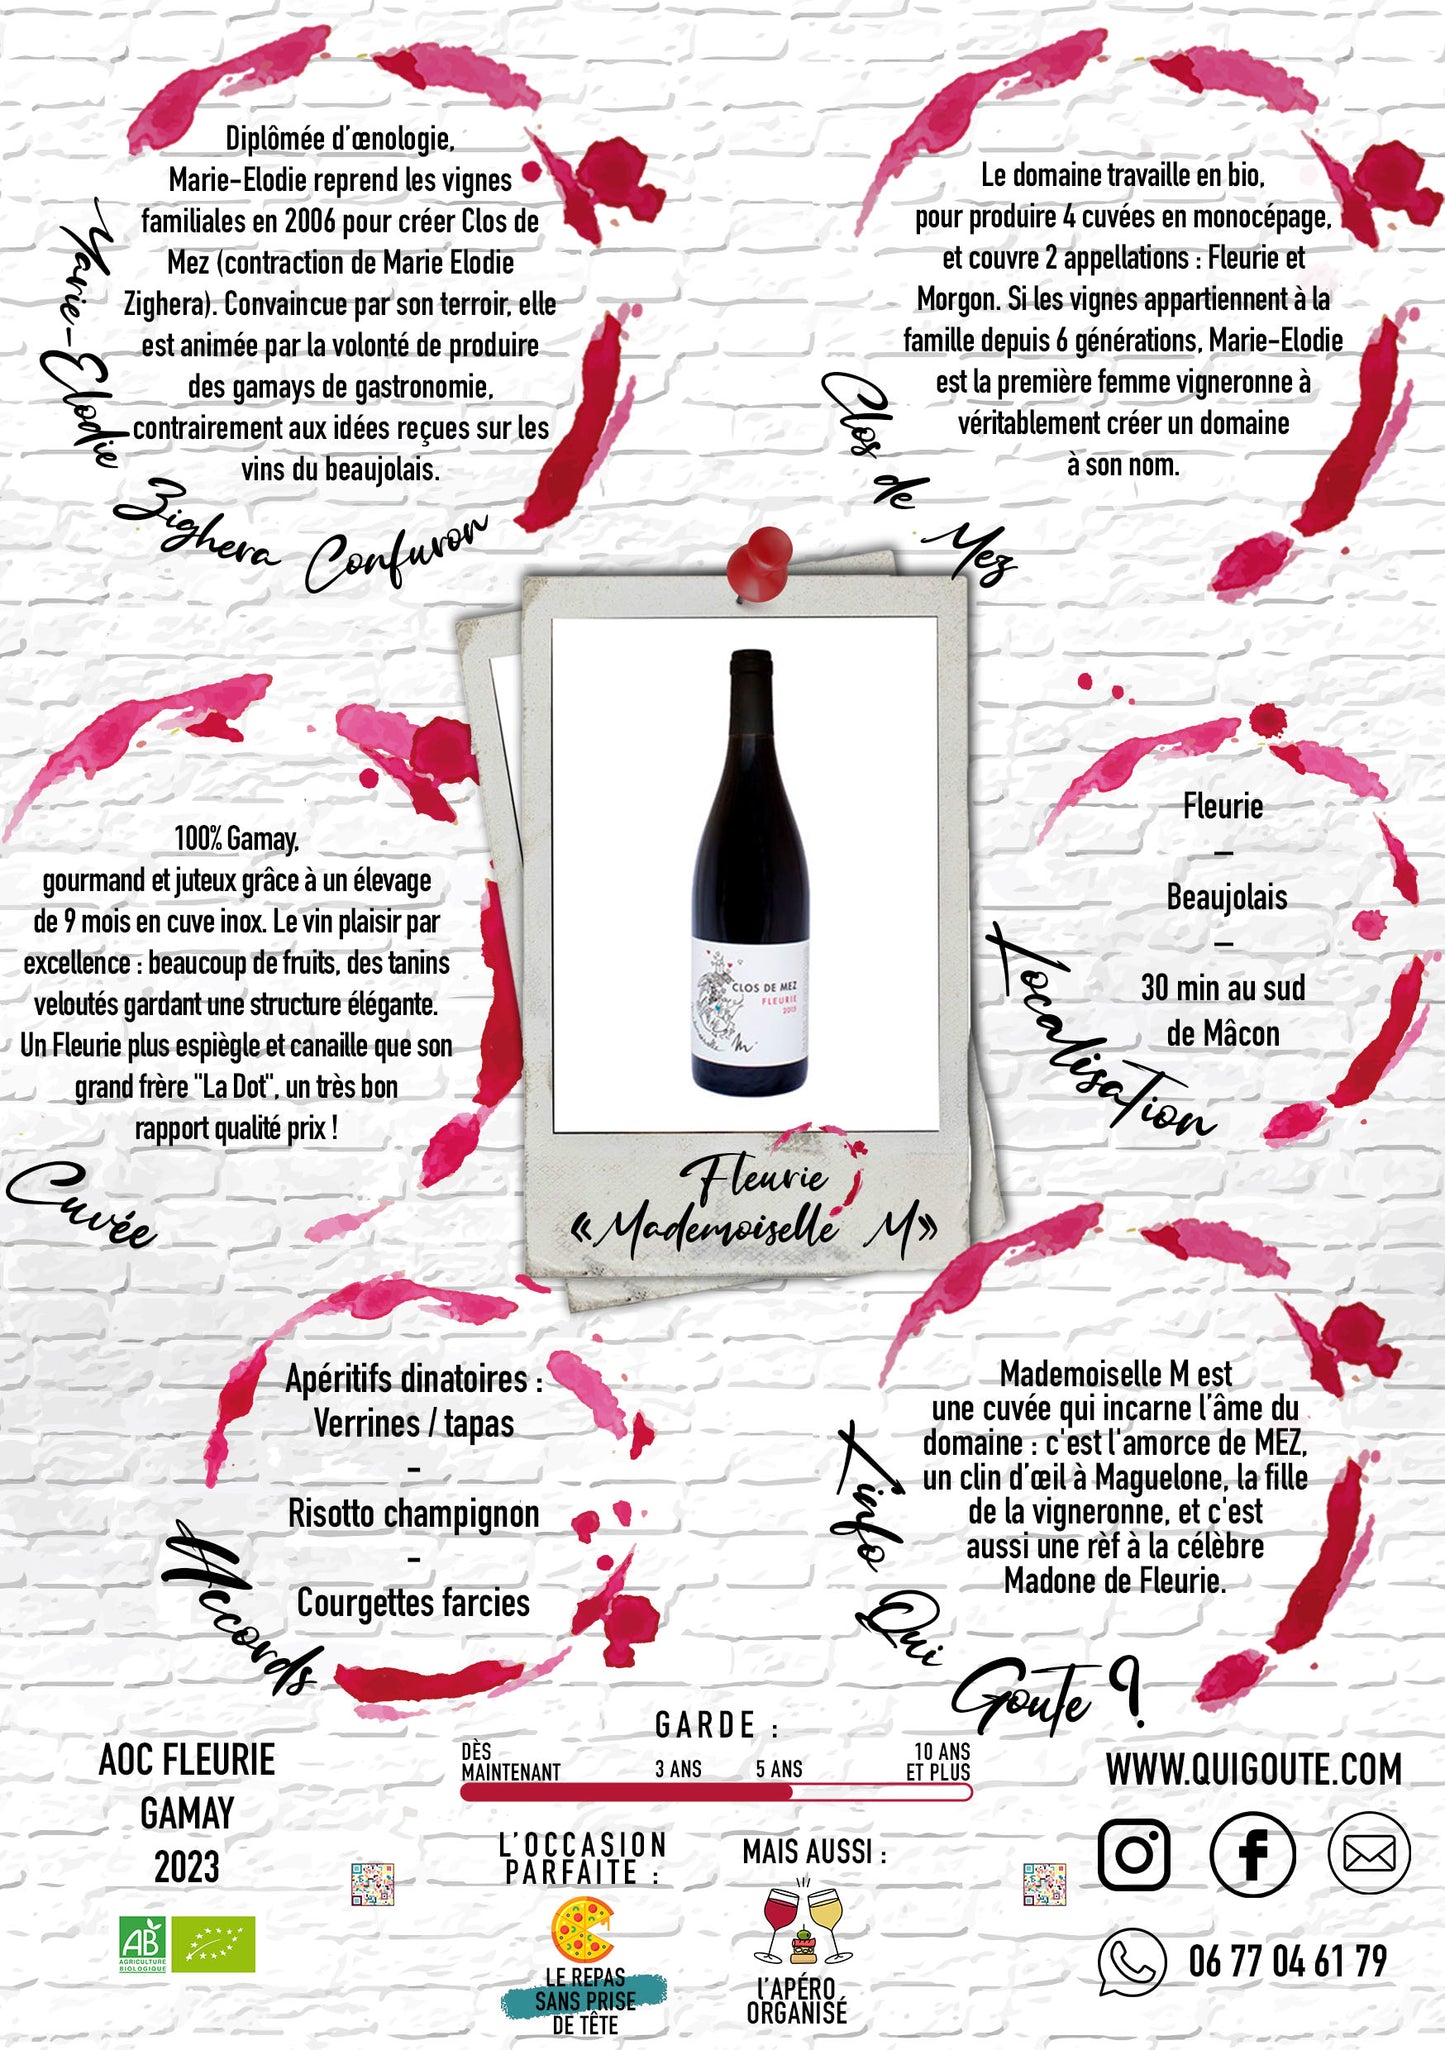 Diplômée d’œnologie,
Marie-Elodie reprend les vignes
familiales en 2006 pour créer Clos de
Mez (contraction de Marie Elodie
Zighera). Convaincue par son terroir, elle
est animée par la volonté de produire
des gamays de gastronomie,
contrairement aux idées reçues sur les
vins du beaujolais.
Marie-Elodie Zighera Confuron
Le domaine travaille en bio,
pour produire 4 cuvées en monocépage,
et couvre 2 appellations : Fleurie et
Morgon. Si les vignes appartiennent à la
famille depuis 6 générations, Marie-Elodie
est la première femme vigneronne à
véritablement créer un domaine
à son nom.
Clos de Mez
100% Gamay,
gourmand et juteux grâce à un élevage
de 9 mois en cuve inox. Le vin plaisir par
excellence : beaucoup de fruits, des tanins
veloutés gardant une structure élégante.
Un Fleurie plus espiègle et canaille que son
grand frère "La Dot", un très bon
rapport qualité prix !
Cuvée
CLOS DE MEZ
FLEURIE
Fleurie
«Mademoiselle M»
Fleurie
–
Beaujolais
–
30 min au sud
de Mâcon
Localisation
Apéritifs dinatoires :
Verrines / tapas
-
Risotto champignon
-
Courgettes farcies
Accords
Mademoiselle M est
une cuvée qui incarne l’âme du
domaine : c'est l'amorce de MEZ,
un clin d’œil à Maguelone, la fille
de la vigneronne, et c'est
aussi une rèf à la célèbre
Madone de Fleurie.
L'info Qui Goute ?
AOC FLEURIE
GAMAY
2023
AB
AGRICULTURE
BIOLOGIQUE
GARDE :
DÈS
MAINTENANT
3 ANS
5 ANS
10 ANS
ET PLUS
L’OCCASION
PARFAITE :
LE REPAS
SANS PRISE
DE TÊTE
MAIS AUSSI :
L’APÉRO
ORGANISÉ
WWW.QUIGOUTE.COM
06 77 04 61 79